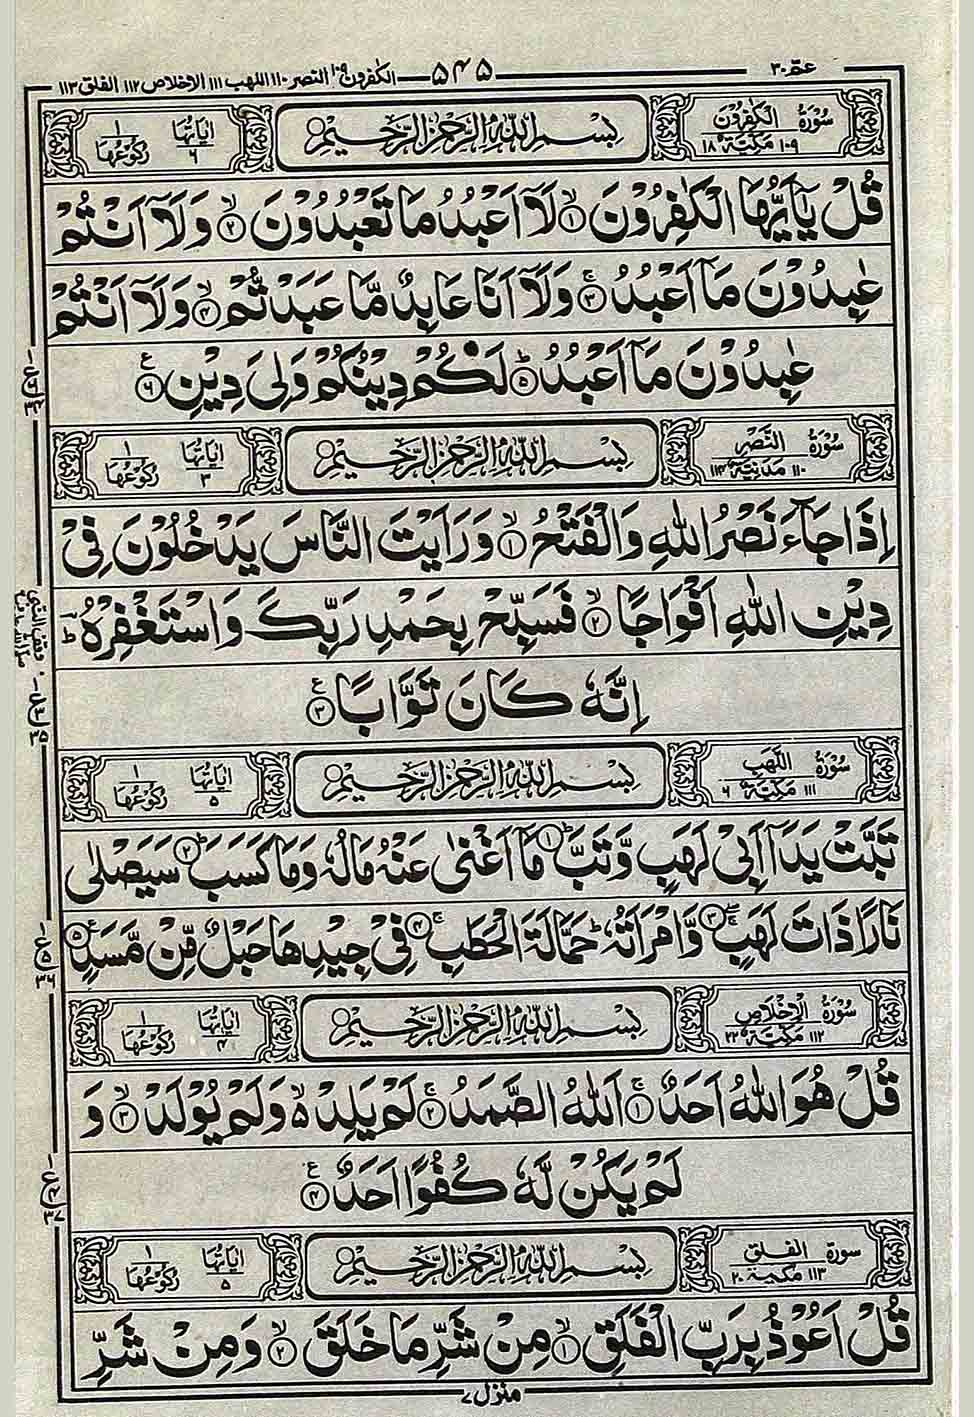 عمّ ۳۰
۵۴۵
الكٰفرون ۱۰۹ النصر ۱۱۰ اللهب ۱۱۱ الاخلاص ۱۱۲ الفلق ۱۱۳
سُوْرَةُ الْكٰفِرُوْنَ ۱۰۹ مَكِّيَّةٌ ۱۸
بِسْمِ اللّٰهِ الرَّحْمٰنِ الرَّحِيْمِ
اٰيَاتُهَا ۶ رُكُوْعُهَا ۱
قُلْ يٰۤاَيُّهَا الْكٰفِرُوْنَ ۙ﴿۱﴾ لَاۤ اَعْبُدُ مَا تَعْبُدُوْنَ ۙ﴿۲﴾ وَلَاۤ اَنْتُمْ
عٰبِدُوْنَ مَاۤ اَعْبُدُ ۚ﴿۳﴾ وَلَاۤ اَنَا عَابِدٌ مَّا عَبَدْتُّمْ ۙ﴿۴﴾ وَلَاۤ اَنْتُمْ
عٰبِدُوْنَ مَاۤ اَعْبُدُ ؕ﴿۵﴾ لَكُمْ دِيْنُكُمْ وَلِيَ دِيْنِ ﴿۶﴾ ع
ع ۱ ۶ ۳۴
سُوْرَةُ النَّصْرِ ۱۱۰ مَدَنِيَّةٌ ۱۱۴
بِسْمِ اللّٰهِ الرَّحْمٰنِ الرَّحِيْمِ
اٰيَاتُهَا ۳ رُكُوْعُهَا ۱
اِذَا جَآءَ نَصْرُ اللّٰهِ وَالْفَتْحُ ۙ﴿۱﴾ وَرَاَيْتَ النَّاسَ يَدْخُلُوْنَ فِيْ
دِيْنِ اللّٰهِ اَفْوَاجًا ۙ﴿۲﴾ فَسَبِّحْ بِحَمْدِ رَبِّكَ وَاسْتَغْفِرْهُ ؕ
اِنَّهٗ كَانَ تَوَّابًا ﴿۳﴾ ع
ع ۱ ۳ ۳۵
سُوْرَةُ اللَّهَبِ ۱۱۱ مَكِّيَّةٌ ۶
بِسْمِ اللّٰهِ الرَّحْمٰنِ الرَّحِيْمِ
اٰيَاتُهَا ۵ رُكُوْعُهَا ۱
تَبَّتْ يَدَاۤ اَبِيْ لَهَبٍ وَّتَبَّ ؕ﴿۱﴾ مَاۤ اَغْنٰى عَنْهُ مَالُهٗ وَمَا كَسَبَ ؕ﴿۲﴾ سَيَصْلٰى
نَارًا ذَاتَ لَهَبٍ ۚ﴿۳﴾ وَّامْرَاَتُهٗ ؕ حَمَّالَةَ الْحَطَبِ ۚ﴿۴﴾ فِيْ جِيْدِهَا حَبْلٌ مِّنْ مَّسَدٍ ﴿۵﴾ ع
ع ۱ ۵ ۳۶
سُوْرَةُ الْاِخْلَاصِ ۱۱۲ مَكِّيَّةٌ ۲۲
بِسْمِ اللّٰهِ الرَّحْمٰنِ الرَّحِيْمِ
اٰيَاتُهَا ۴ رُكُوْعُهَا ۱
قُلْ هُوَ اللّٰهُ اَحَدٌ ۚ﴿۱﴾ اَللّٰهُ الصَّمَدُ ۚ﴿۲﴾ لَمْ يَلِدْ ۙ۬ وَلَمْ يُوْلَدْ ۙ﴿۳﴾ وَ
لَمْ يَكُنْ لَّهٗ كُفُوًا اَحَدٌ ﴿۴﴾ ع
ع ۱ ۴ ۳۷
سورة الفلق ۱۱۳ مكية ۲۰
بِسْمِ اللّٰهِ الرَّحْمٰنِ الرَّحِيْمِ
اٰيَاتُهَا ۵ رُكُوْعُهَا ۱
قُلْ اَعُوْذُ بِرَبِّ الْفَلَقِ ۙ﴿۱﴾ مِنْ شَرِّ مَا خَلَقَ ۙ﴿۲﴾ وَمِنْ شَرِّ
منزل ۷